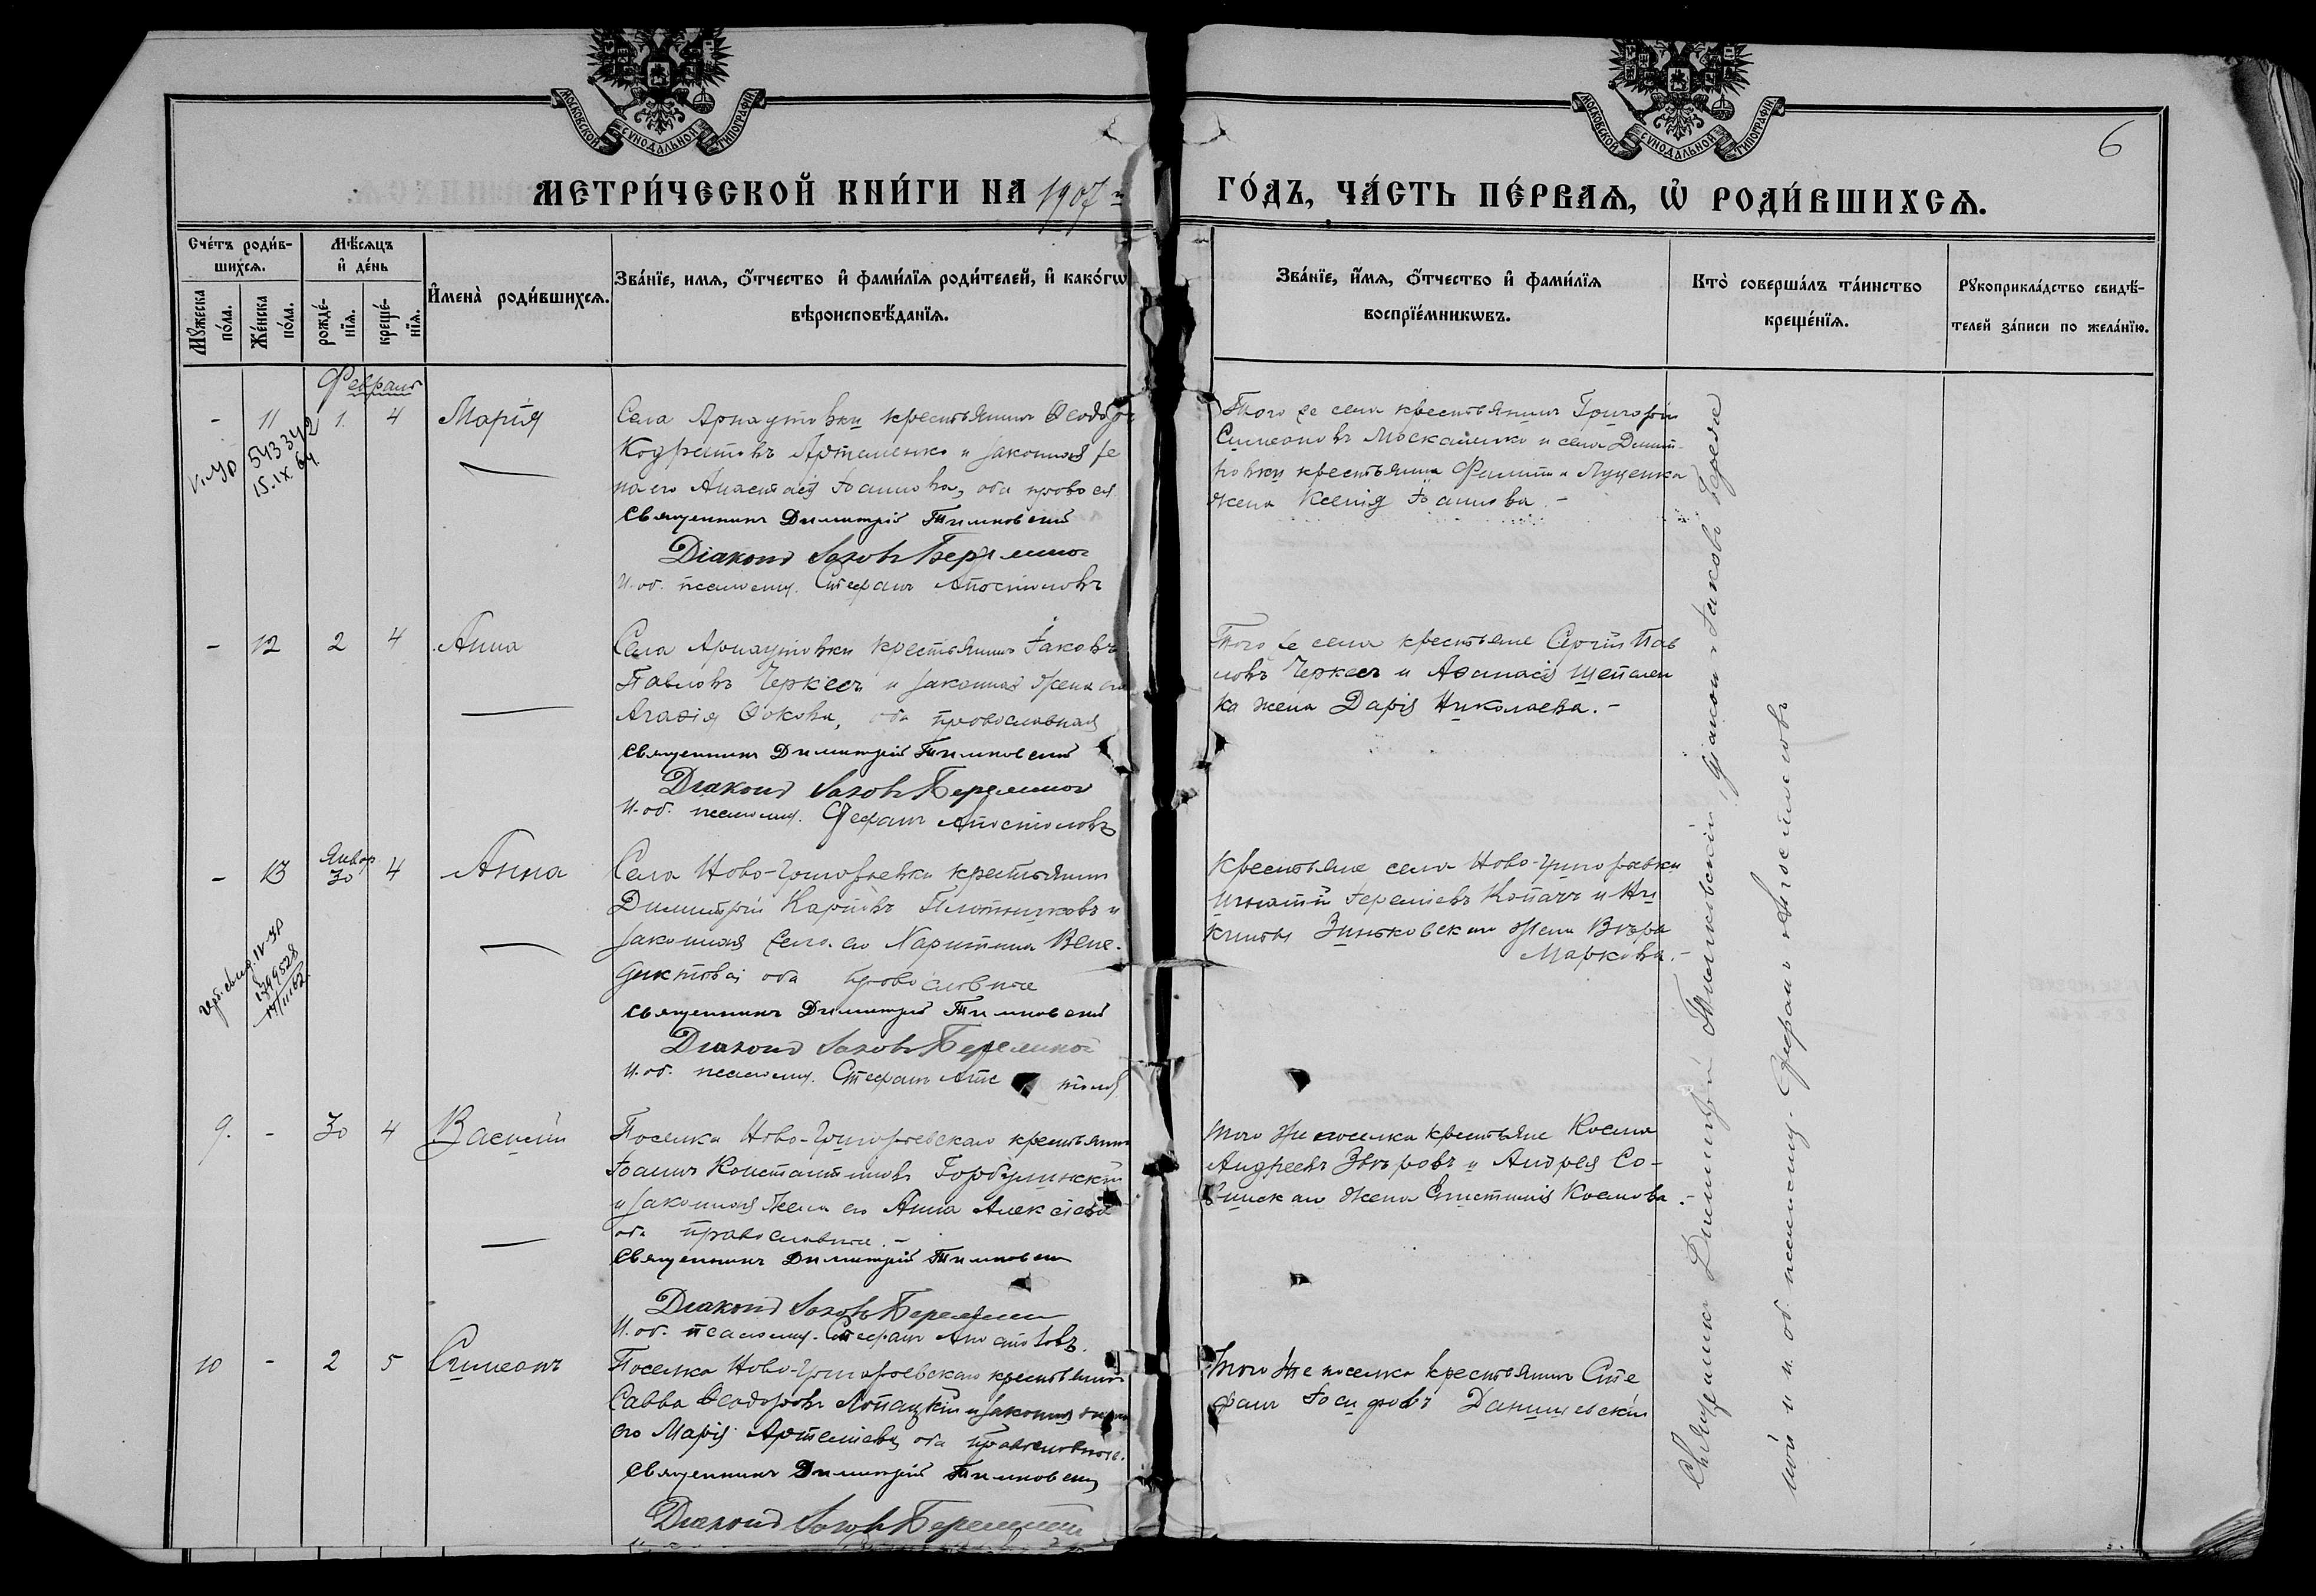 МОСКОВСКОЙ СѴНОДАЛЬНОЙ ТИПОГРАФІИ
МОСКОВСКОЙ СѴНОДАЛЬНОЙ ТИПОГРАФІИ
6
МЕТРИ́ЧЕСКОЙ КНИ́ГИ НА 1907-й
ГО́ДЪ, ЧА́СТЬ ПЕ́РВАѦ, Ѡ҆ РОДИ́ВШИХСѦ.
Сче́тъ роди́в-
шихсѧ.
Мѣ́сѧцъ
и҆ де́нь
Мꙋ́жеска
по́ла.
Же́нска
по́ла.
рожде́-
нїѧ.
креще́-
нїѧ.
И҆мена̀ роди́вшихсѧ.
Зва́нїе, имѧ, ѻ҆́тчество и҆ фами́лїѧ роди́телей, и҆ како́гѡ
вѣроисповѣ́данїѧ.
Зва́нїе, и҆́мѧ, ѻ҆́тчество и҆ фами́лїѧ
воспрїе́мникѡвъ.
Кто̀ соверша́лъ та́инство
креще́нїѧ.
Рꙋкоприкла́дство свидѣ́-
телей за́писи по жела́нїю.
Февраль
- 11 1. 4 Марія
543342
15.IX.64
Села Арнаутовки крестьянинъ Ѳеодоръ
Кодратовъ Артеменко и законная же
на его Анастасія Іоаннова, оба правосл.
Священникъ Димитрій Тимковскій
Діаконъ Іаковъ Бережной
И. об. псаломщ. Стефанъ Апостоловъ
Того же села крестьянинъ Григорій
Симеоновъ Москаленко и села Димит-
ровки крестьянина Филиппа Луценка
жена Ксенія Іаннова.-
- 12 2 4 Анна
Села Арнаутовки крестьянинъ Іаковъ
Павловъ Черкесъ и законная жена его
Агафія Фокова, оба православная
Священникъ Димитрій Тимковскій
Діаконъ Іаковъ Бережной
И. об. псаломщ. Стефанъ Апостоловъ
Того же села крестьяне Сергій Пав
ловъ Черкесъ и Аѳанасія Щепален
ка жена Дарія Николаева.-
- 13 Январ. 30 4 Анна
герб. свид. IV-УР
1399528
Села Ново-Григорьевки крестьянинъ
Димитрій Карповъ Плотниковъ и
законная жена его Харитина Вене-
диктова оба православные
Священникъ Димитрій Тимковскій
Діаконъ Іаковъ Бережной
И. об. псаломщ. Стефанъ Апостоловъ
Крестьяне села Ново-Григорьевки
Игнатій Іереміевъ Копачъ и Ни
киты Зиньковскаго жена Вѣра
Маркова.-
9. - 30 4 Василій
Поселка Ново-Григорьевскаго крестьянинъ
Іоаннъ Константиновъ Горбулинскій
и законная жена его Анна Алексіева
оба православные.-
Священникъ Димитрій Тимковскій
Діаконъ Іаковъ Бережной
И. об. псаломщ. Стефанъ Апостоловъ.
Того же поселка крестьяне Косма
Андреевъ Звѣровъ и Андрея Со-
винскаго жена Епистимія Космова.-
10 - 2 5 Симеонъ
Поселка Ново-Григорьевскаго крестьянинъ
Савва Ѳеодоровъ Лопацкій и законная жена
его Марія Артеміева оба православные.
Священникъ Димитрій Тимковскій
Діаконъ Іаковъ Бережной
Того же поселка крестьянинъ Сте
фанъ Іосифовъ Данишевскій
Священникъ Димитрій Тимковскій, діаконъ Іаковъ Береж
ной и и. об. псаломщ. Стефанъ Апостоловъ